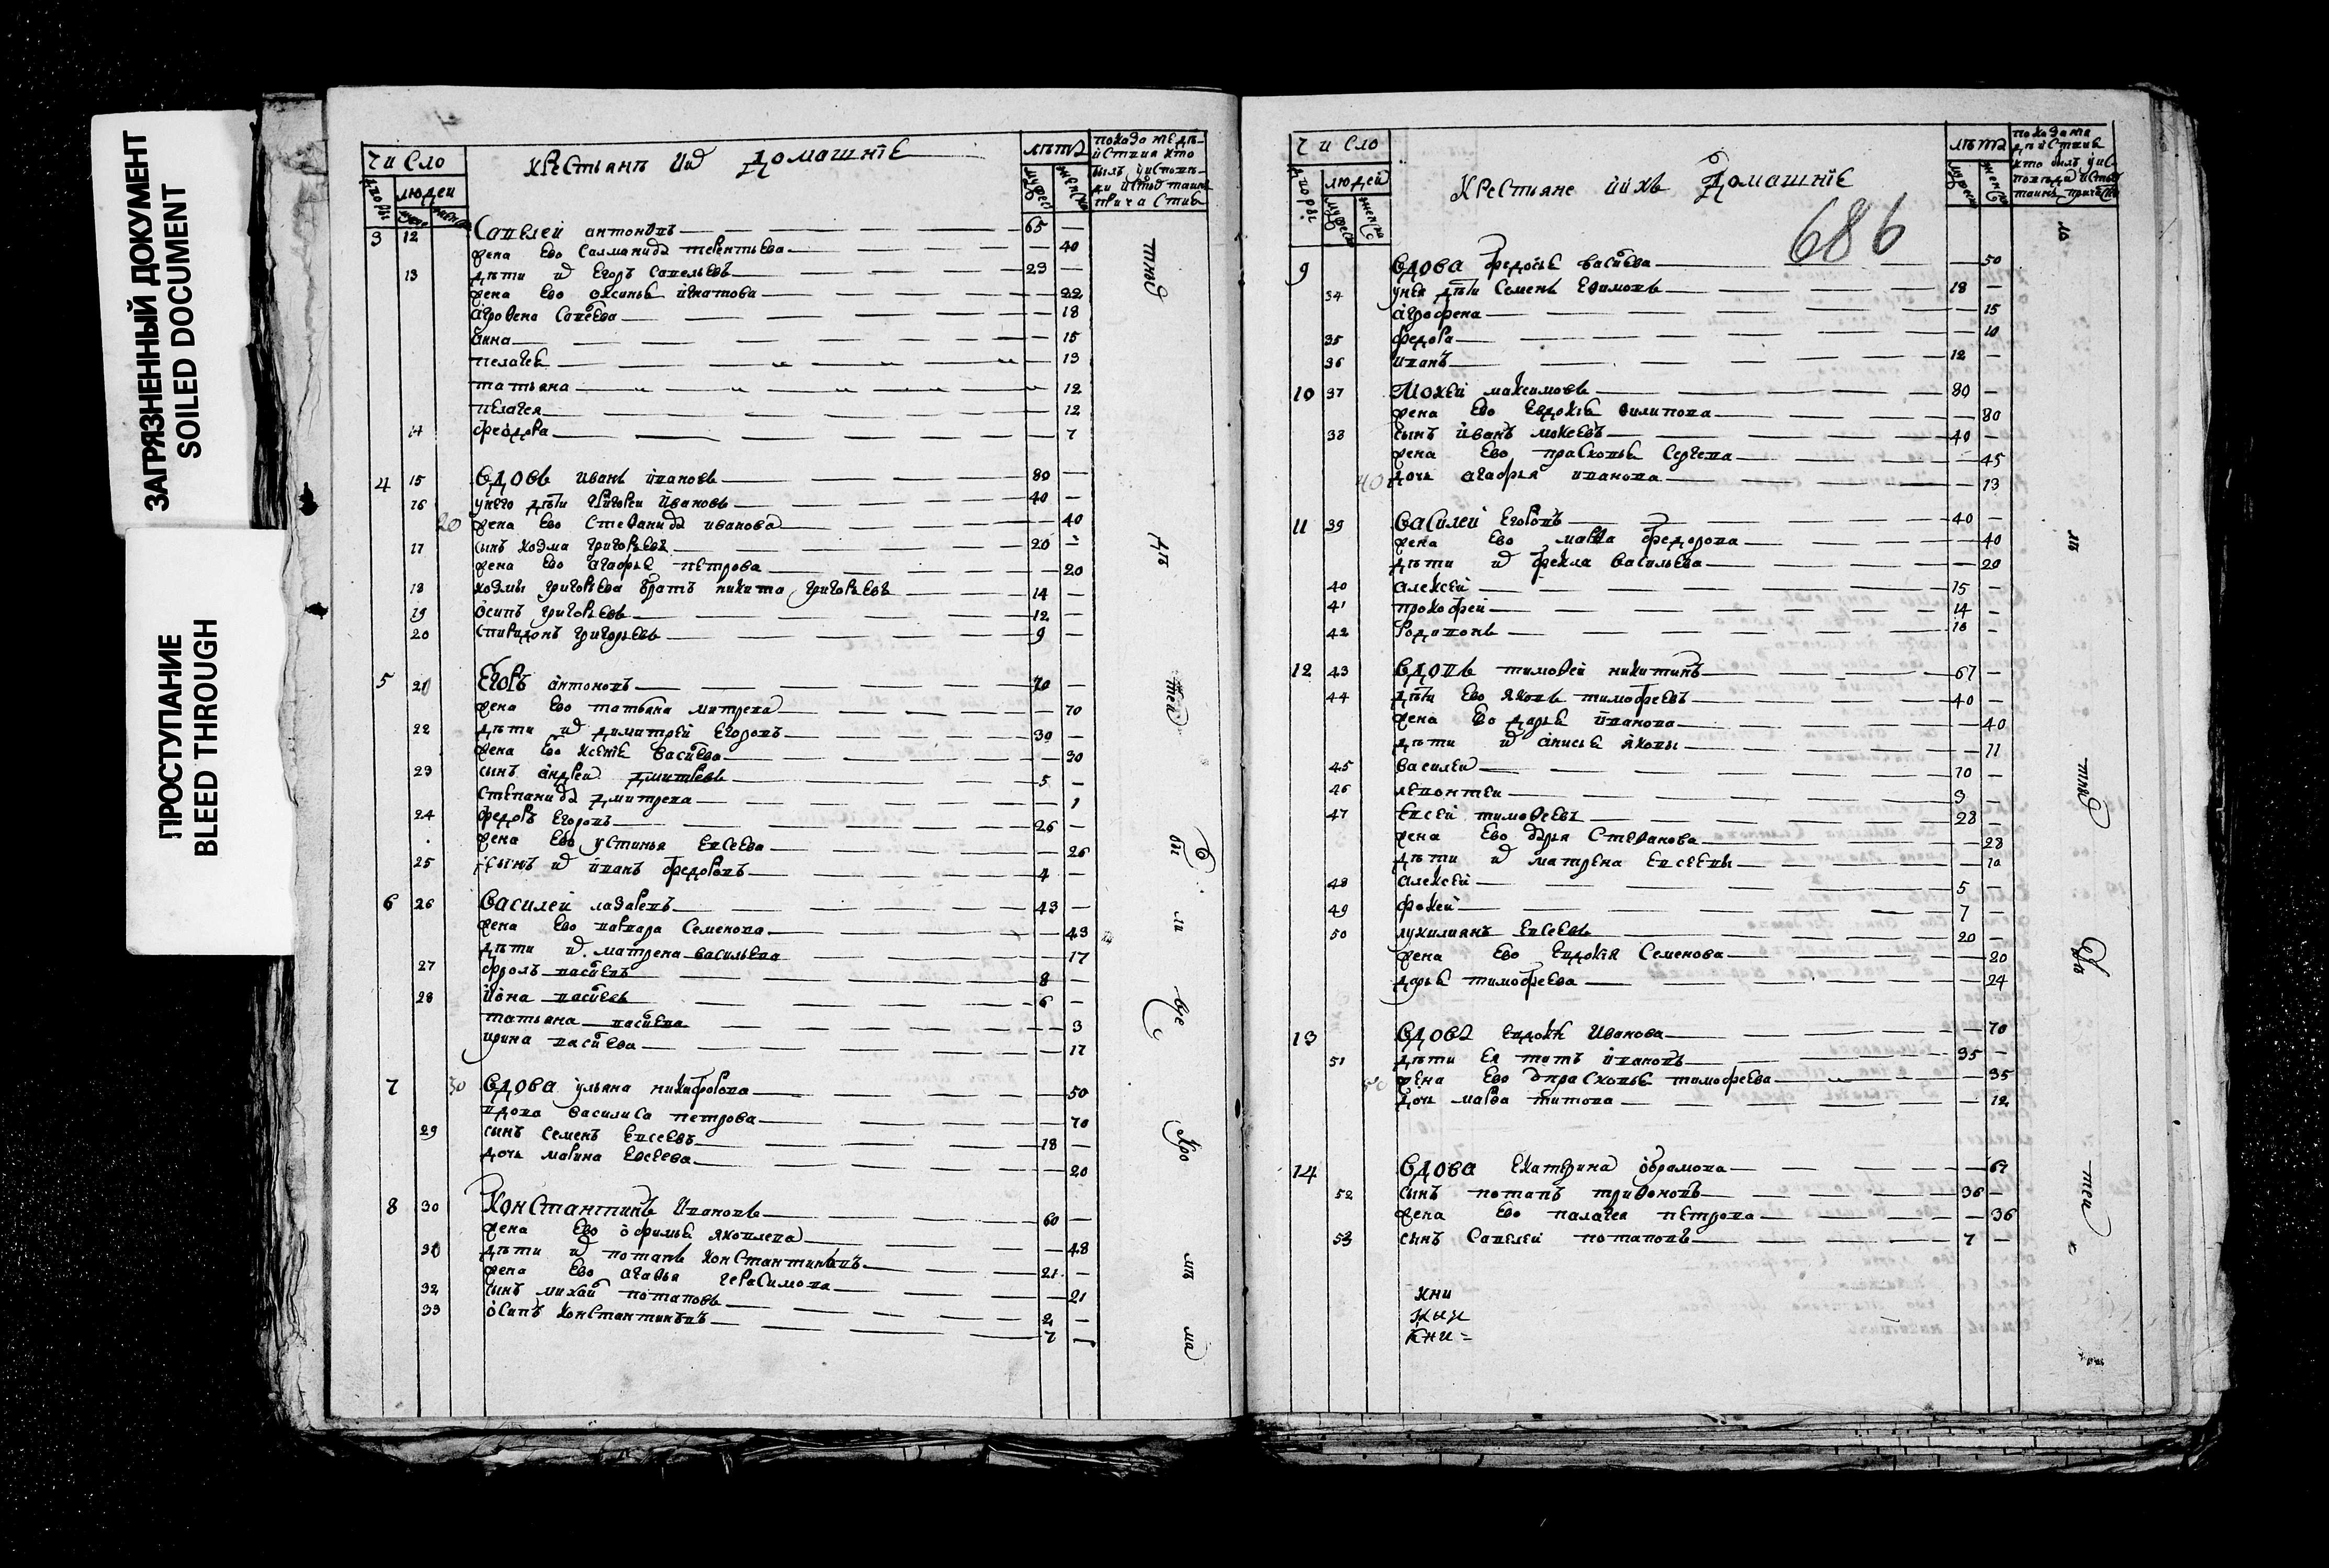 ЗАГРЯЗНЕННЫЙ ДОКУМЕНТ
SOILED DOCUMENT
ПРОСТУПАНИЕ
BLEED THROUGH
число
крестьянъ ихъ домашніе
лѣта
людей
3 12 Савелей антоновъ 65
жена ево Саломанида терентьева 40
13 дѣти их Егоръ Савельевъ 23
жена ево оксинья игнатова 22
агрофена Савеева 18
анна 15
пелагея 13
татьяна 12
пелагея 12
14 феодора 7
4 15 вдовъ иванъ ивановъ 80
16 унего дѣти григорей ивановъ 40
20 жена ево Стефанида иванова 40
17 сынъ козма григорьевъ 20
жена ево агафья петрова 20
18 козмы григорьева братъ никита григорьевъ 14
19 осипъ григорьевъ 12
20 спиридонъ григорьевъ 9
5 21 Егоръ антоновъ 70
жена ево татьяна митрева 70
22 дѣти их димитрей Егоровъ 30
жена ево ксенія васиева 30
23 сынъ андрей дмитревъ 5
степанида дмитрева 1
24 федоръ Егоровъ 26
жена ево устинья Евсеева 26
25 сынъ их иванъ федоровъ 4
6 26 Василей лазаревъ 43
жена ево варвара Семенова 43
дѣти их матрена васильева 17
27 фролъ васиевъ 8
28 иона васиевъ 6
татьяна васиева 3
ирина васиева 17
7 30 вдова ульяна никифорова 50
вдова василиса петрова 70
29 сынъ семенъ Евсеевъ 18
дочь марина Евсеева 20
8 30 Константинъ Ивановъ 60
жена ево офимья яковлева 48
31 дѣти их потапъ константиновъ 21
жена ево агафья герасимова 21
32 сынъ михай потаповъ 2
33 осипъ константиновъ 7
число
крестьяне ихъ домашніе
лѣта
людей
686
9 вдова федосья васиева 50
34 унея дѣти Семенъ Ефимовъ 18
агрофена 15
35 федора 10
36 иванъ 12
10 37 Мокей максимовъ 80
жена ево евдокія филипова 80
38 сынъ иванъ мокеевъ 40
жена ево прасковья Сергева 45
40 дочь агафья иванова 13
11 39 василей егоровъ 40
жена ево марфа федорова 40
дѣти их фекла васильева 20
40 алексей 15
41 прокофей 14
42 Родивонъ 10
12 43 вдовъ тимофей никитинъ 67
44 дѣти ево яковъ тимофеевъ 40
жена ево дарья иванова 40
дѣти их анисья яковы 11
45 василей 10
46 левонтеи 9
47 Евсей тимофеевъ 28
жена ево дарья Стефанова 28
дѣти их матрена Евсеевы 10
48 алексей 5
49 фокей 7
50 лукилиянъ Евсеевъ 20
жена ево Евдокія Семенова 20
дарья тимофеева 24
13 вдова евдокія Иванова 70
51 дѣти ея титъ ивановъ 35
50 жена ево прасковья тимофеева 35
дочь марфа титова 12
14 вдова Екатерина абрамова 67
52 сынъ потапъ трифоновъ 36
жена ево палагея петрова 36
53 сынъ Савелей потаповъ 7
кни
кни
кни